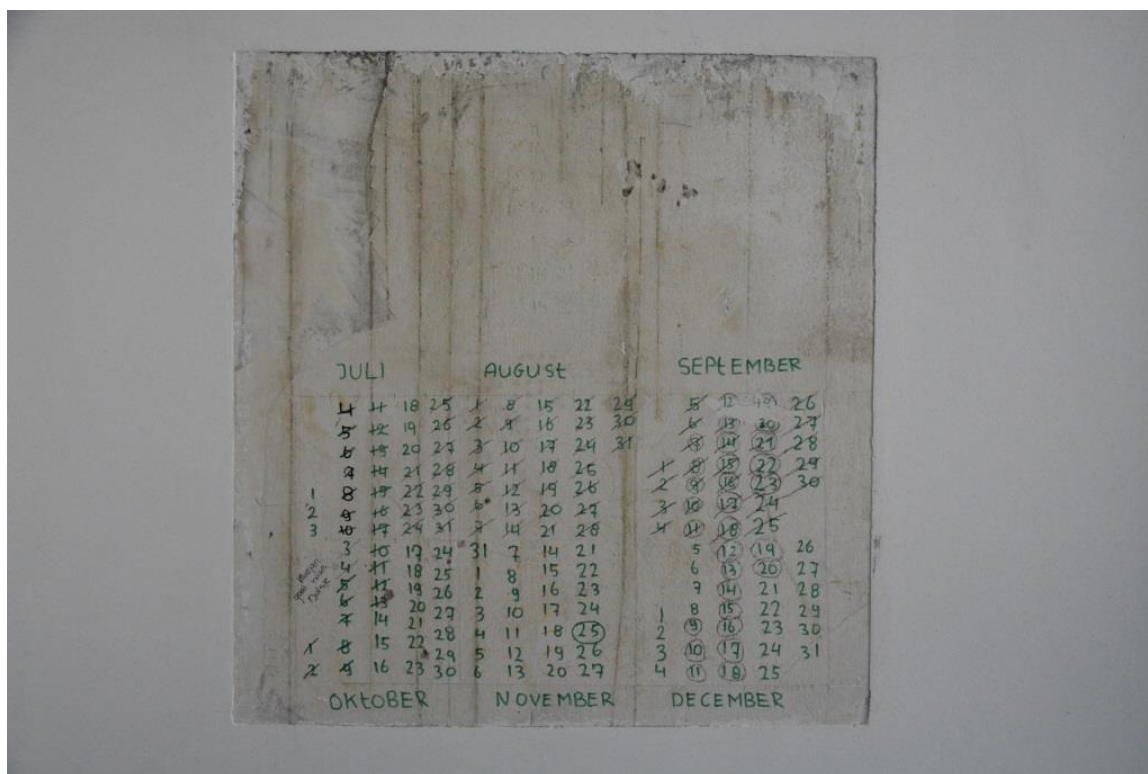 JULI AUGUST SEPTEMBER
4 11 18 25 1 8 15 22 29 5 12 19 26
5 12 19 26 2 9 16 23 30 6 13 20 27
6 13 20 27 3 10 17 24 31 7 14 21 28
7 14 21 28 4 11 18 25 1 8 15 22 29
1 8 15 22 29 5 12 19 26 2 9 16 23 30
2 9 16 23 30 6 13 20 27 3 10 17 24
3 10 17 24 31 7 14 21 28 4 11 18 25
3 10 17 24 31 7 14 21 5 12 19 26
4 11 18 25 1 8 15 22 6 13 20 27
5 12 19 26 2 9 16 23 7 14 21 28
6 13 20 27 3 10 17 24 1 8 15 22 29
7 14 21 28 4 11 18 25 2 9 16 23 30
1 8 15 22 29 5 12 19 26 3 10 17 24 31
2 9 16 23 30 6 13 20 27 4 11 18 25
OKtOBER NOVEMBER DECEMBER